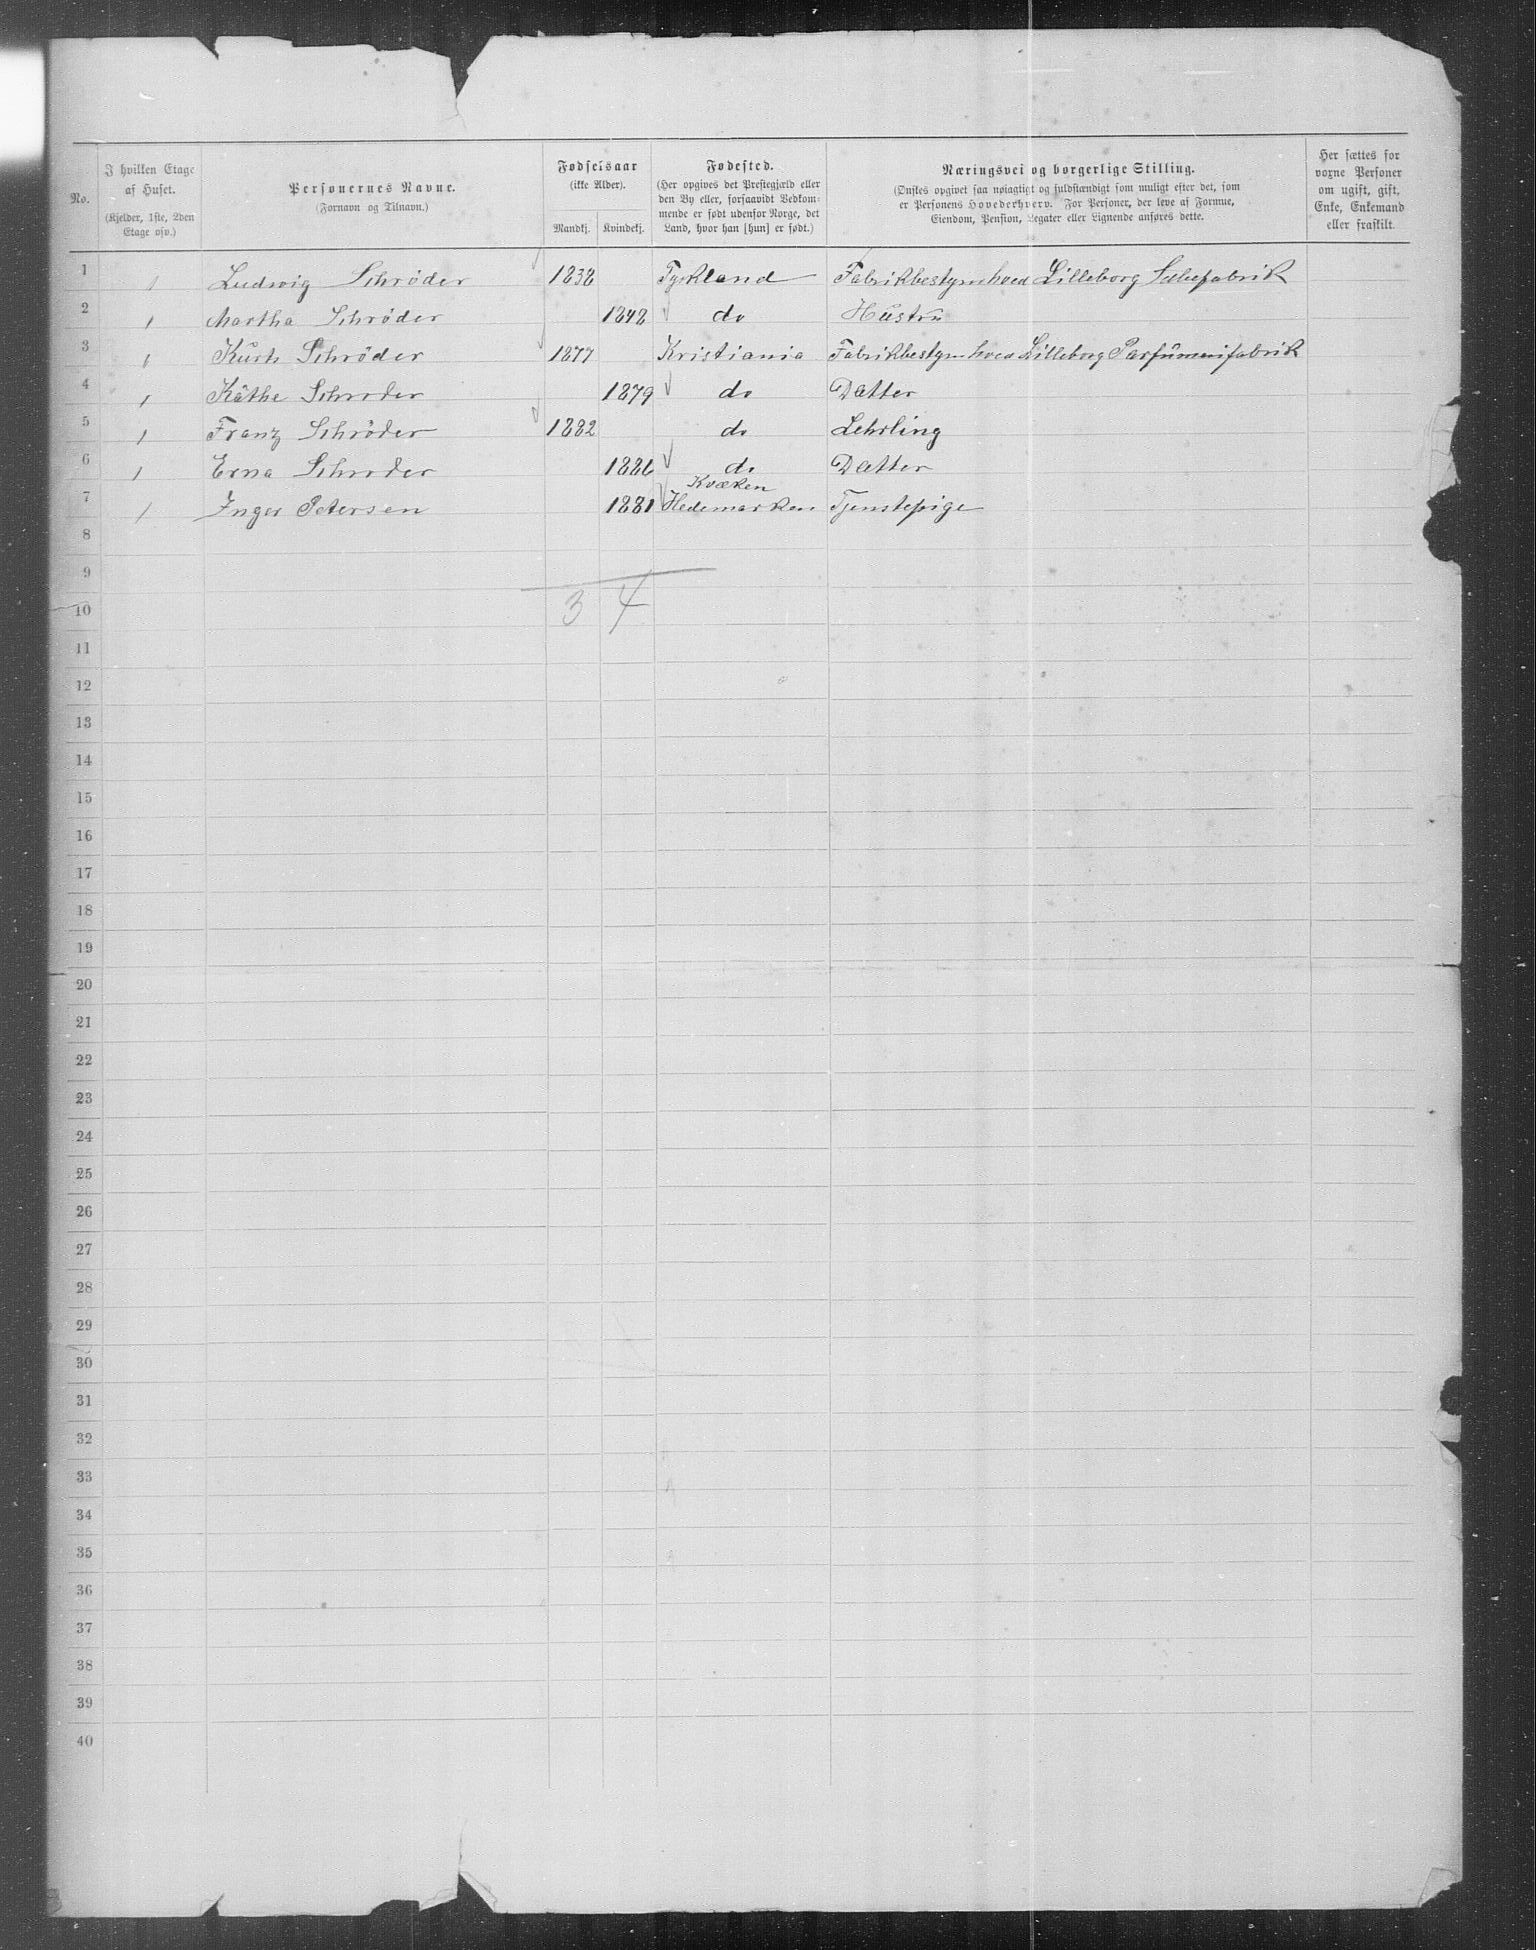 No.
I hvilken Etage af Huset.
(Kjelder, 1ste, 2den Etage osv.)
Personernes Navne.
(Fornavn og Tilnavn.)
Fødselsaar
(ikke Alder).
Mandkj. Kvindekj.
Fødested.
(Her opgives det Prestegjæld eller
den By eller, forsaavidt Vedkom-
mende er født udenfor Norge, det
Land, hvor han [hun] er født.)
Næringsvei og borgerlige Stilling.
(Ønskes opgivet saa nøiagtigt og fuldstændigt som muligt efter det, som
er Personens Hovederhverv. For Personer, der leve af Formue,
Eiendom, Pension, Legater eller Lignende anføres dette.
Her sættes for
vorne Personer
om ugift, gift,
Enke, Enkemand
eller fraskilt.
1 1 Ludwig Schröder 1838 Tyskland Fabrikbestyrer hved Lilleborg Sæbefabrik
2 1 Martha Schröder 1848 do Hustrü
3 1 Kürt Schröder 1877 Kristiania Fabrikbestyrer hved Lilleborg Parfümerifabrik
4 1 Käthe Schroder 1879 do Datter
5 1 Franz Schröder 1882 do Lehrling
6 1 Erna Schroder 1886 do Datter
7 1 Inger Petersen 1881 Hedemarken Tjenstepige
8
9
3 4
10
11
12
13
14
15
16
17
18
19
20
21
22
23
24
25
26
27
28
29
30
31
32
33
34
35
36
37
38
39
40